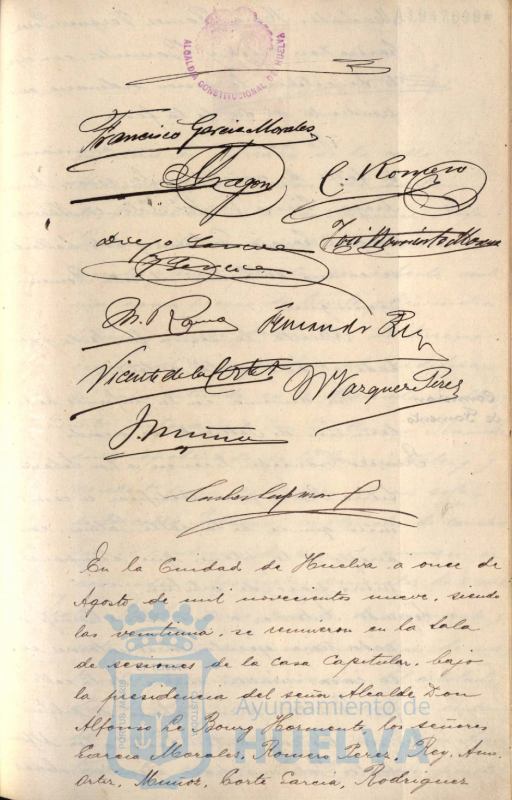 ALCALDIA CONSTITUCIONAL DE HUELVA
Francisco Garcia Morales
Aragon C. Romero
José Marmiento
García
M. Fernando Rey
Vicente de la Corte M Vazquez Perez
J. Muñoz
Carlos
En la Ciudad de Huelva a once de
Agosto de mil novecientos nueve, siendo
las veintiuna, se reunieron en la Sala
de sesiones de la casa Capitular, bajo
la presidencia del señor Alcalde Don
Alfonso Le Bourg Hormente los señores
García Morales, Romero Perez, Rey, 
Ortiz, Muñoz, Corte García, Rodriguez
Ayuntamiento de
HUELVA